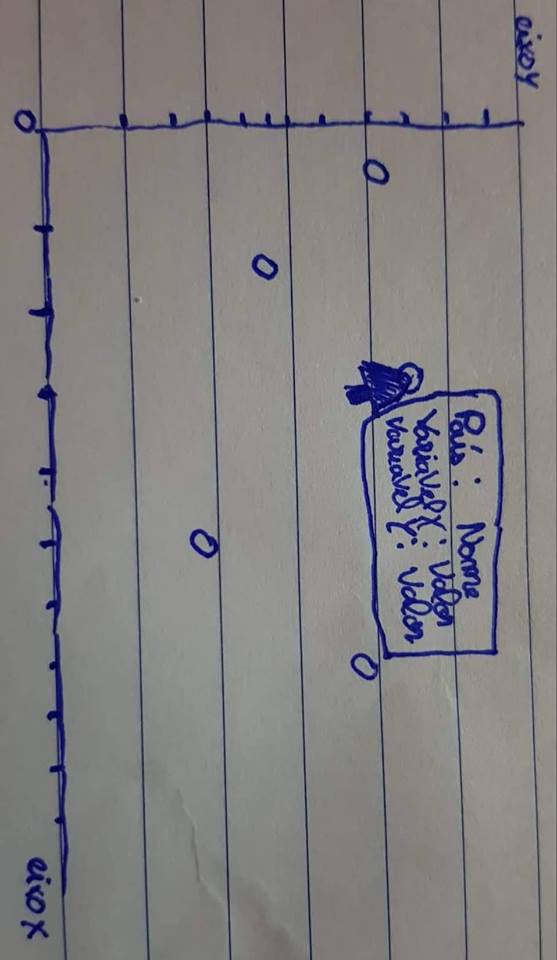 eixo Y
País: Nome
Variável X: Valor
Variável Y: Valor
0
eixo X